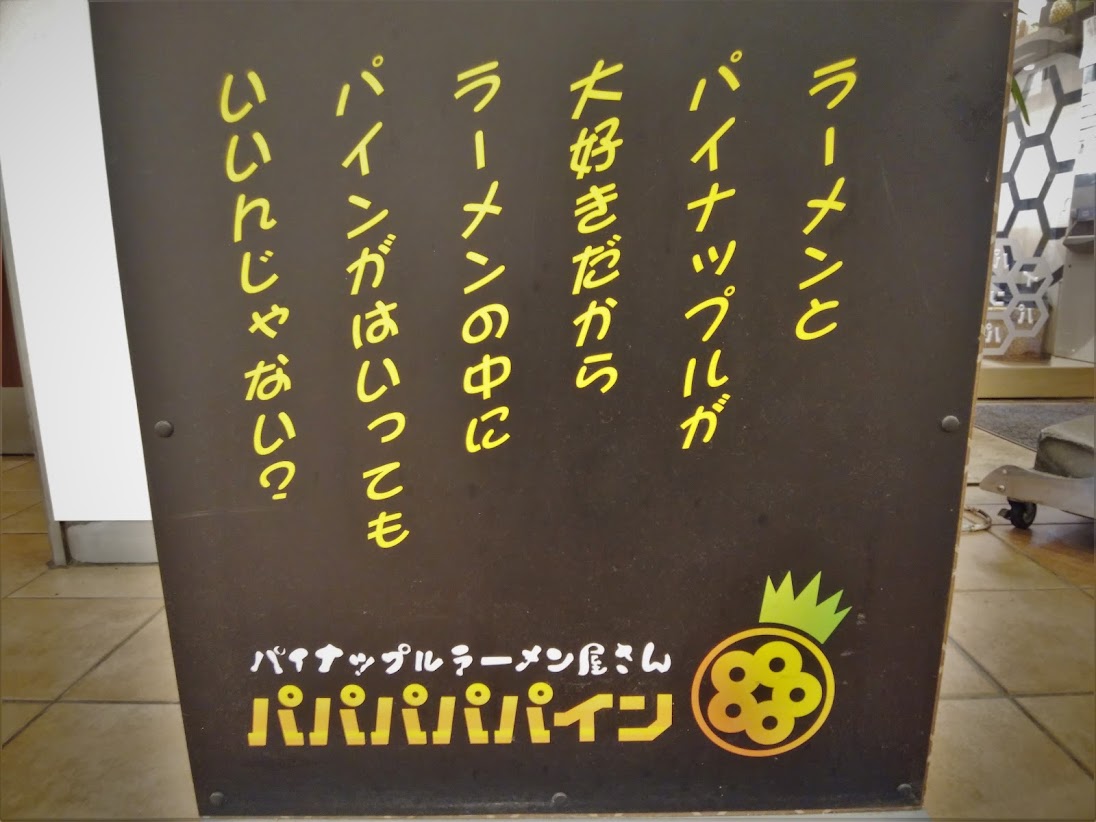 ラーメンと
パイナップルが
大好きだから
ラーメンの中に
パインがはいっても
いいんじゃない?
パイナップルラーメン屋さん
パパパパパイン